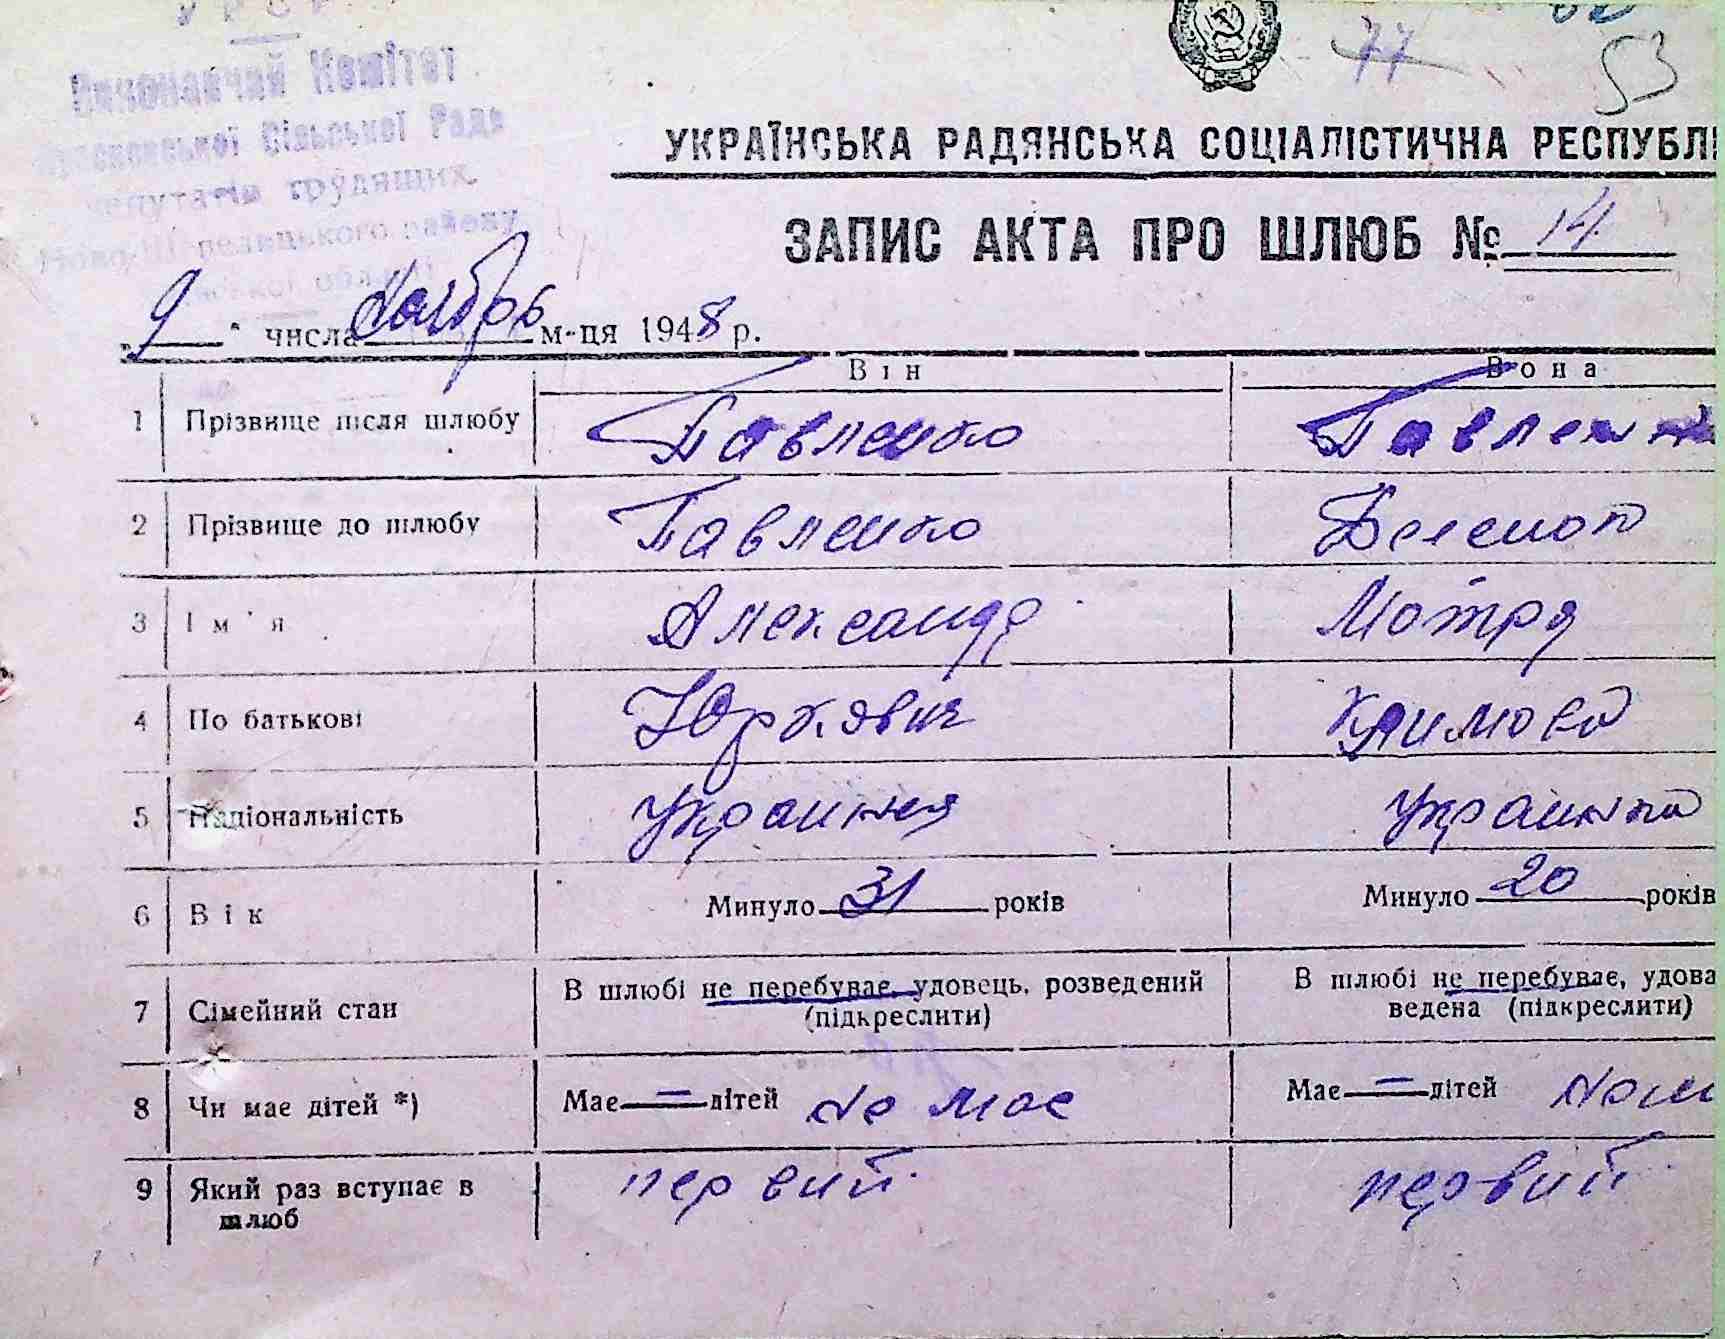 УРСР
Виконавчий Комітет
Сільської Ради
депутатів трудящих
району
області
77
53
УКРАЇНСЬКА РАДЯНСЬКА СОЦІАЛІСТИЧНА РЕСПУБЛІ
ЗАПИС АКТА ПРО ШЛЮБ № 14
„9" числа Ноябрь м-ця 1948 р.
Він Вона
1 Прізвище після шлюбу Павленко Павленк
2 Прізвище до шлюбу Павленко
3 Ім'я Александр Мотря
4 По батькові Юркович Климова
5 Національність Украинец Украинка
6 Вік Минуло 31 років Минуло 20 років
7 Сімейний стан В шлюбі не перебуває, удовець, розведений (підкреслити) В шлюбі не перебуває, удова ведена (підкреслити)
8 Чи має дітей *) Має = дітей Не має Має = дітей
9 Який раз вступає в шлюб первий первий